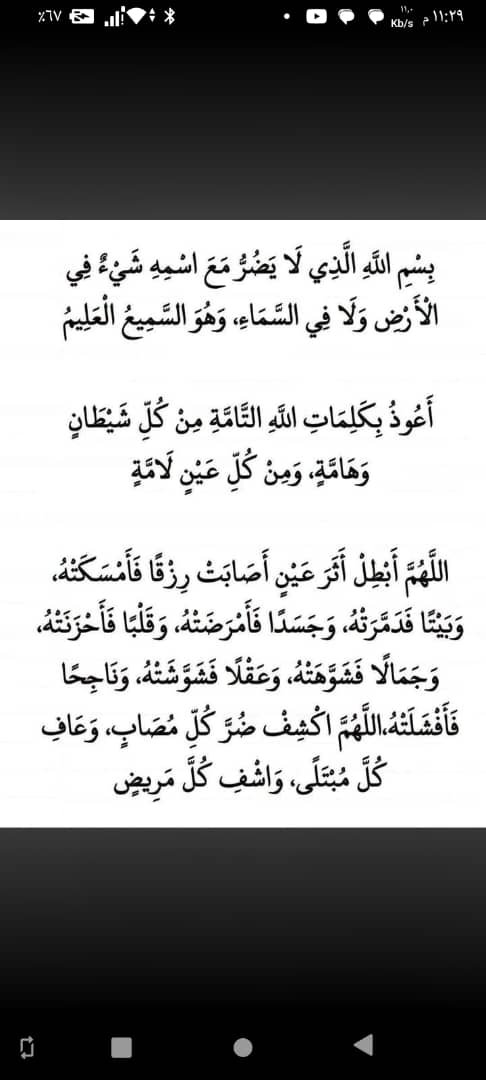 ٪٦٧
١١,٠ Kb/s
١١:٢٩ م
بِسْمِ اللَّهِ الَّذِي لَا يَضُرُّ مَعَ اسْمِهِ شَيْءٌ فِي
الْأَرْضِ وَلَا فِي السَّمَاءِ، وَهُوَ السَّمِيعُ الْعَلِيمُ
أَعُوذُ بِكَلِمَاتِ اللَّهِ التَّامَّةِ مِنْ كُلِّ شَيْطَانٍ
وَهَامَّةٍ، وَمِنْ كُلِّ عَيْنٍ لَامَّةٍ
اللَّهُمَّ أَبْطِلْ أَثَرَ عَيْنٍ أَصَابَتْ رِزْقًا فَأَمْسَكَتْهُ،
وَبَيْتًا فَدَمَّرَتْهُ، وَجَسَدًا فَأَمْرَضَتْهُ، وَقَلْبًا فَأَحْزَنَتْهُ،
وَجَمَالًا فَشَوَّهَتْهُ، وَعَقْلًا فَشَوَّشَتْهُ، وَنَاجِحًا
فَأَفْشَلَتْهُ،اللَّهُمَّ اكْشِفْ ضُرَّ كُلِّ مُصَابٍ، وَعَافِ
كُلَّ مُبْتَلًى، وَاشْفِ كُلَّ مَرِيضٍ